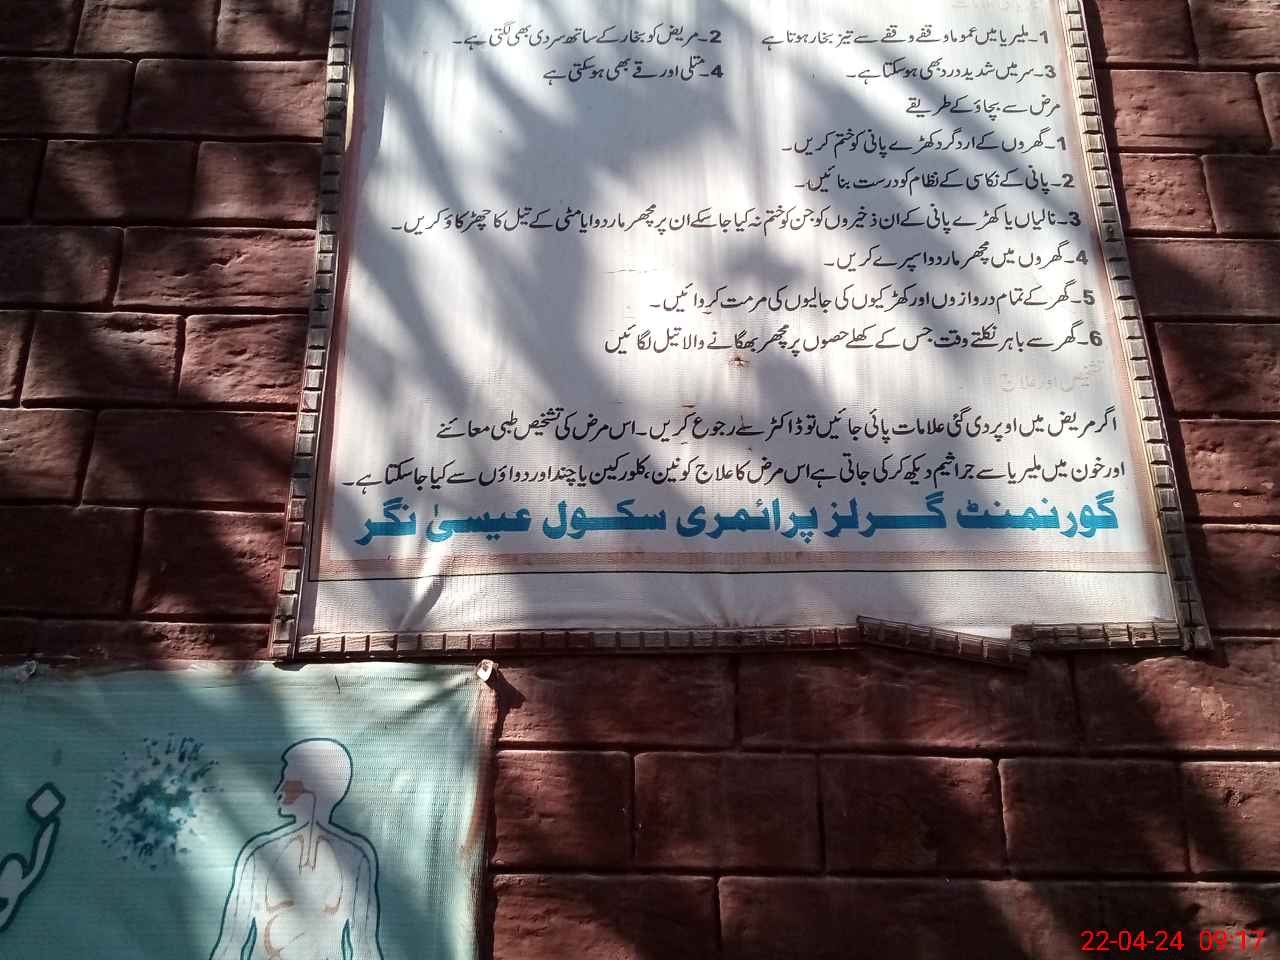 1۔ملیریا میں عموماً وقفے وقفے سے تیز بخار ہوتا ہے 2۔مریض کو بخار کے ساتھ سردی بھی لگتی ہے۔
3۔سر میں شدید درد بھی ہو سکتا ہے۔ 4۔متلی اور قے بھی ہو سکتی ہے
مرض سے بچاؤ کے طریقے
1۔گھروں کے ارد گرد کھڑے پانی کو ختم کریں۔
2۔پانی کے نکاسی کے نظام کو درست بنائیں۔
3۔نالیاں یا کھڑے پانی کے ان ذخیروں کو جن کو ختم نہ کیا جا سکے ان پر مچھر مار دوا یا مٹی کے تیل کا چھڑکاؤ کریں۔
4۔گھروں میں مچھر مار دوا سپرے کریں۔
5۔گھر کے تمام دروازوں اور کھڑکیوں کی جالیوں کی مرمت کروائیں۔
6۔گھر سے باہر نکلتے وقت جس کے کھلے حصوں پر مچھر بھگانے والا تیل لگائیں
تشخیص اور علاج
اگر مریض میں اوپر دی گئی علامات پائی جائیں تو ڈاکٹر سے رجوع کریں۔اس مرض کی تشخیص طبی معائنے
اور خون میں ملیریا سے جراثیم دیکھ کر کی جاتی ہے اس مرض کا علاج کونین،کلورکین یا چند اور دواؤں سے کیا جا سکتا ہے۔
گورنمنٹ گرلز پرائمری سکول عیسیٰ نگر
22-04-24 09:17